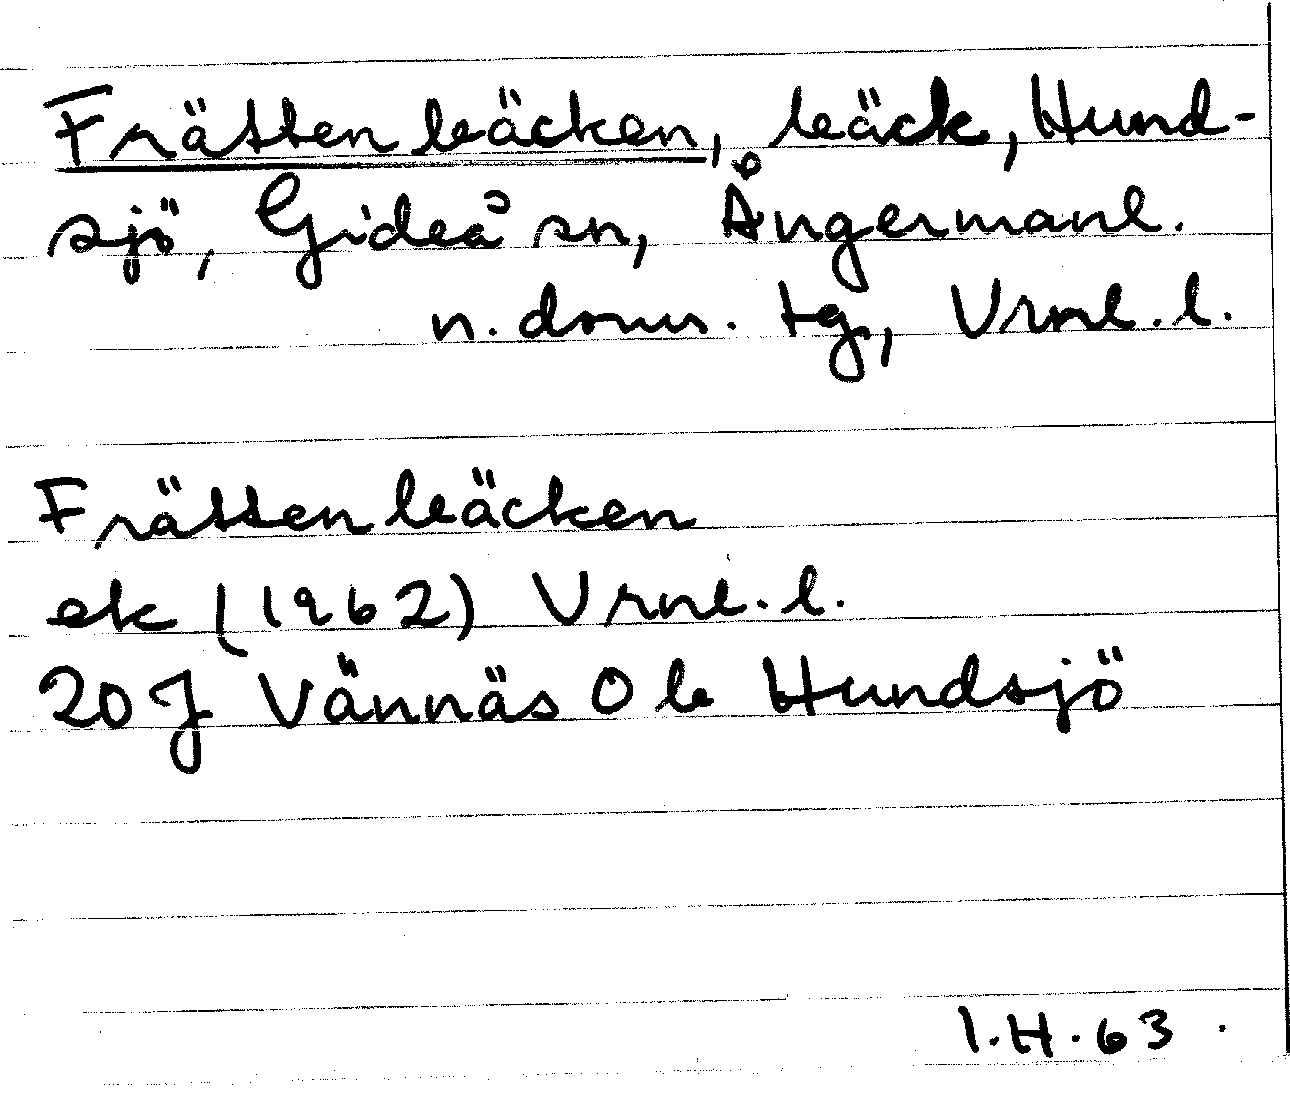 Frättenbäcken, bäck, Hund-
sjö, Gideå sn, Ångermanl.
n. doms. tg, Vrnl. l.
Frättenbäcken
ek (1962) Vrnl. l.
20J Vännäs 0 b Hundsjö
I.H. 63